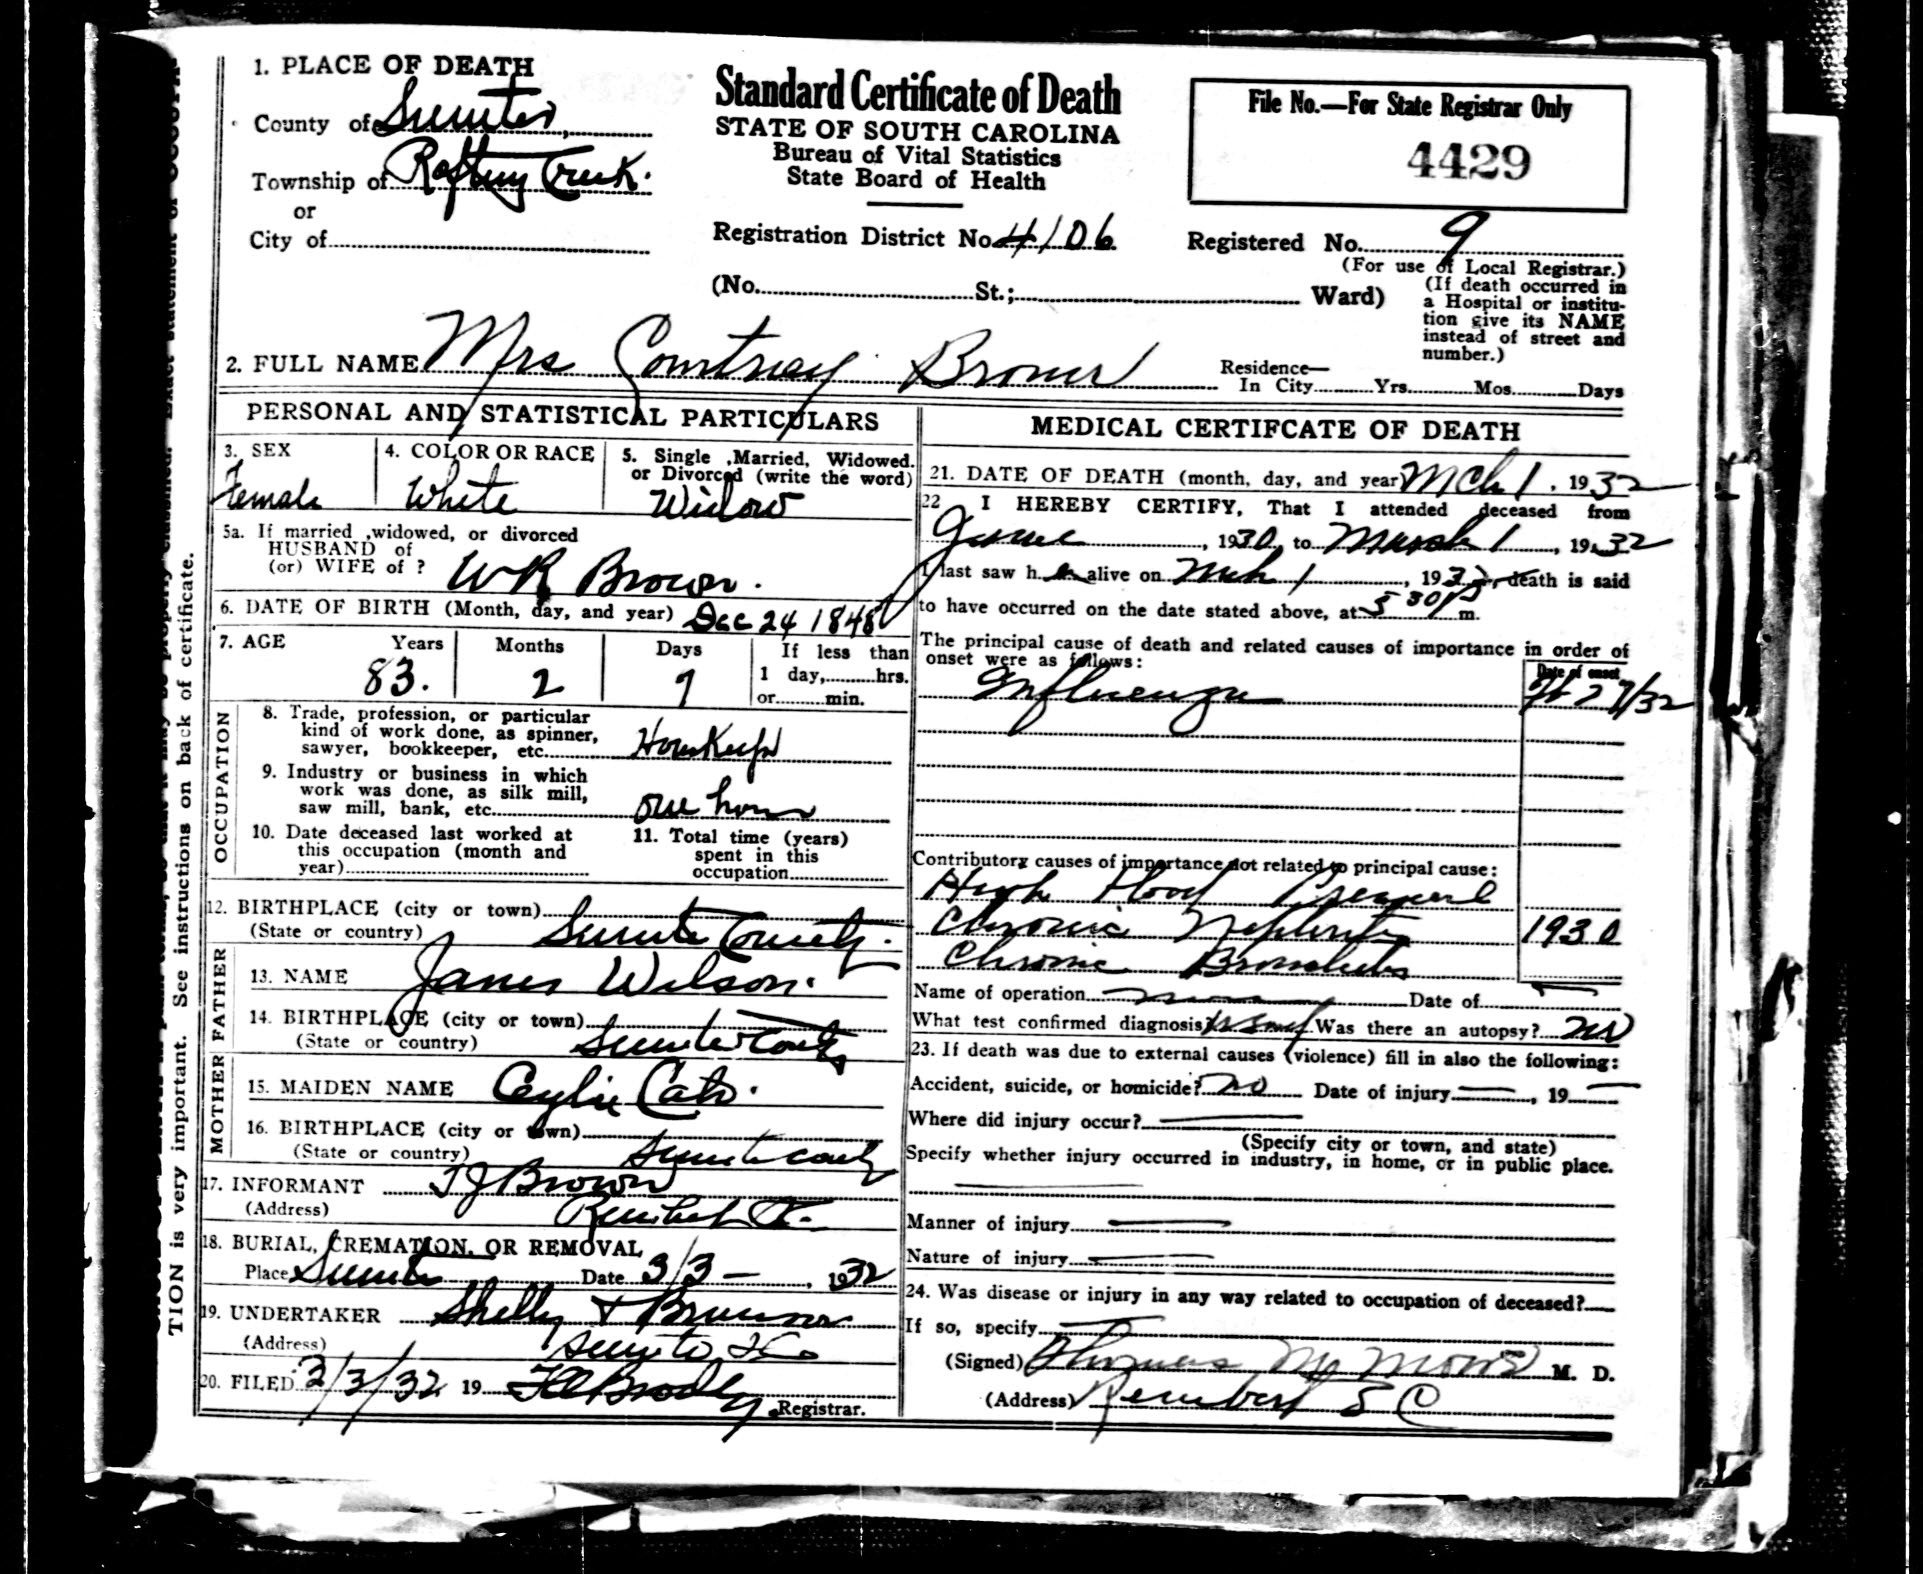 1. PLACE OF DEATH
County of Sumter,
Township of Rafting Creek.
or
City of
Standard Certificate of Death
STATE OF SOUTH CAROLINA
Bureau of Vital Statistics
State Board of Health
File No.—For State Registrar Only
4429
Registration District No. 4106
Registered No. 9
(For use of Local Registrar.)
(No. St.; Ward)
(If death occurred in
a Hospital or institu-
tion give its NAME
instead of street and
number.)
2. FULL NAME Mrs Courtney Brown
Residence—
In City Yrs. Mos. Days
PERSONAL AND STATISTICAL PARTICULARS
3. SEX
Female
4. COLOR OR RACE
White
5. Single ,Married, Widowed.
or Divorced (write the word)
Widow
5a. If married ,widowed, or divorced
HUSBAND of
(or) WIFE of ? WR Brown.
6. DATE OF BIRTH (Month, day, and year) Dec 24 1848
7. AGE
Years Months Days
83. 2 7
If less than
1 day, hrs.
or min.
OCCUPATION
8. Trade, profession, or particular
kind of work done, as spinner,
sawyer, bookkeeper, etc.
9. Industry or business in which
work was done, as silk mill,
saw mill, bank, etc.
10. Date deceased last worked at
this occupation (month and
year)
11. Total time (years)
spent in this
occupation
12. BIRTHPLACE (city or town)
(State or country) Sumter County.
FATHER
13. NAME James Wilson.
14. BIRTHPLACE (city or town)
(State or country) Sumter County
MOTHER
15. MAIDEN NAME
16. BIRTHPLACE (city or town)
(State or country) Sumter county
17. INFORMANT TJ Brown
(Address) Rembert
18. BURIAL, CREMATION, OR REMOVAL
Place Sumter Date 3/3 — , 1932
19. UNDERTAKER Shelley & Brunson
(Address) Sumter SC
20. FILED 3/3/32 19
Registrar.
MEDICAL CERTIFCATE OF DEATH
21. DATE OF DEATH (month, day, and year) Mch 1, 1932
22 I HEREBY CERTIFY, That I attended deceased from
June , 1930, to March 1 , 1932
I last saw h er alive on Mch 1 , 1932, death is said
to have occurred on the date stated above, at 5 30 P m.
The principal cause of death and related causes of importance in order of
onset were as follows:
Date of onset
Influenza 27/32
Contributory causes of importance not related to principal cause:
High Blood Pressure
Chronic Nephritis 1930
Chronic Bronchitis
Name of operation Date of
What test confirmed diagnosis? Was there an autopsy? no
23. If death was due to external causes (violence) fill in also the following:
Accident, suicide, or homicide? no Date of injury , 19
Where did injury occur?
(Specify city or town, and state)
Specify whether injury occurred in industry, in home, or in public place.
Manner of injury
Nature of injury
24. Was disease or injury in any way related to occupation of deceased?
If so, specify
(Signed) Thomas M. D.
(Address) Rembert S C
TION is very important. See instructions on back of certificate.